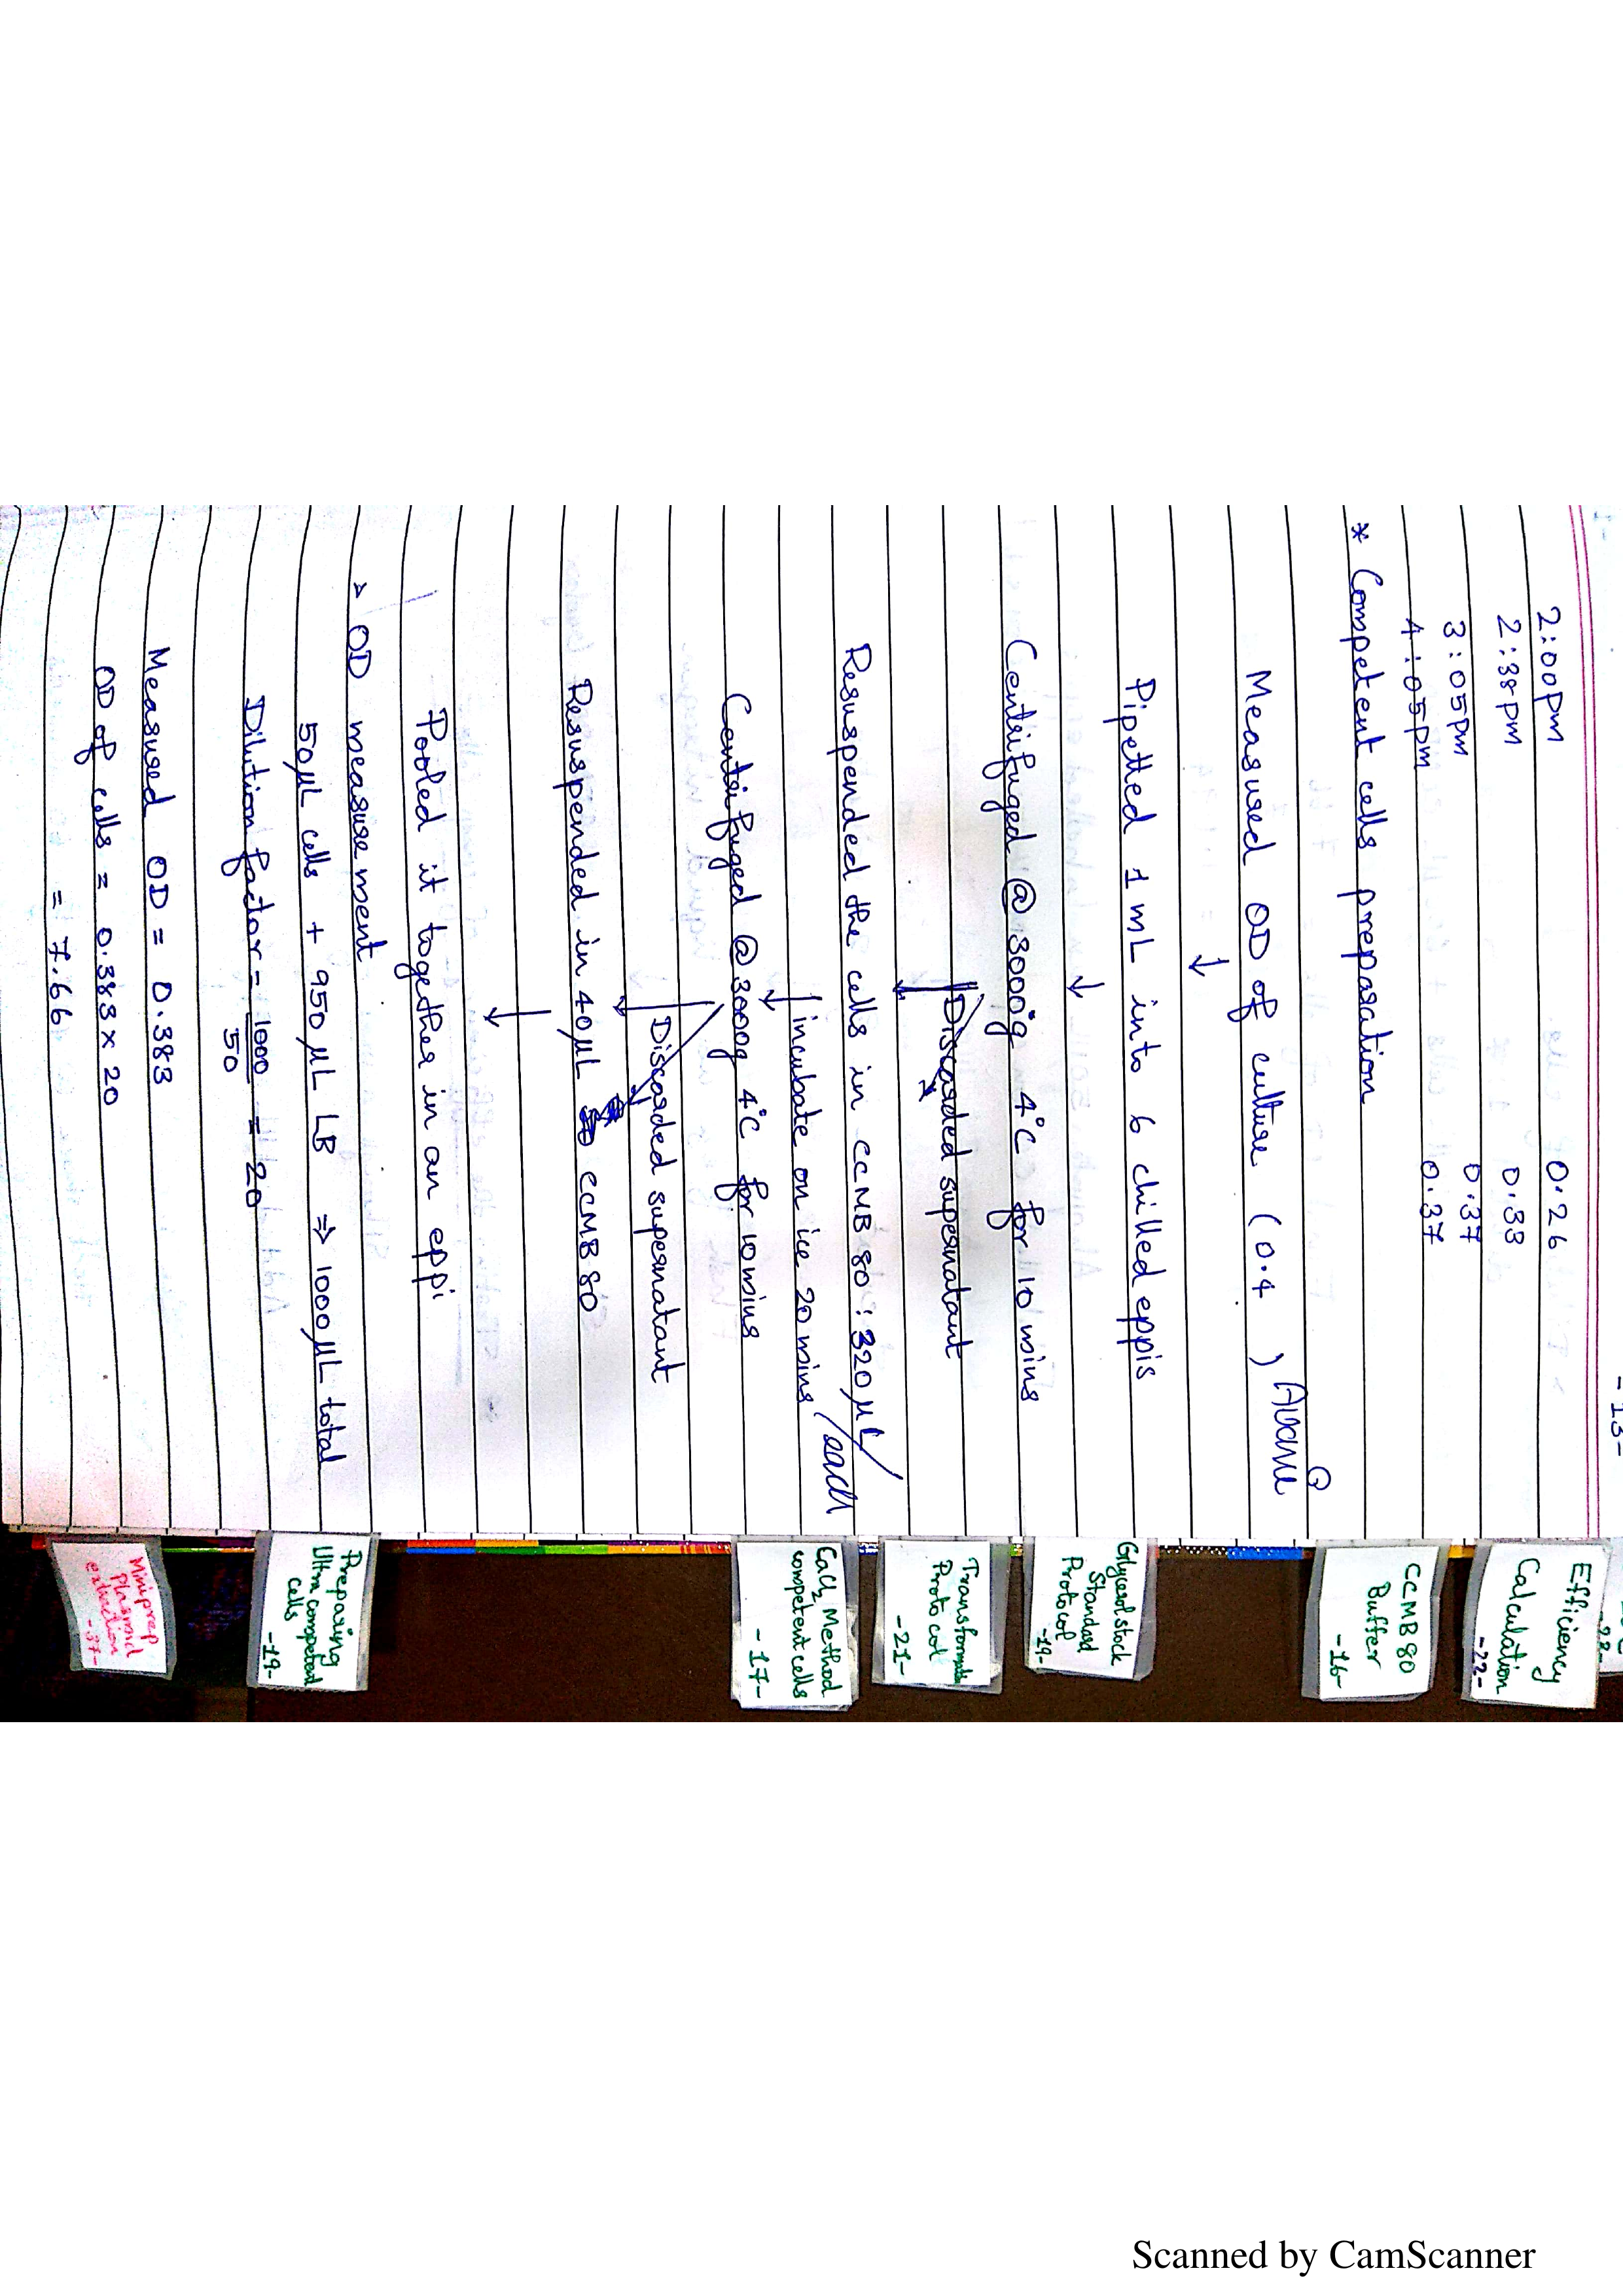 - 13 -
2:00pm 0.26
2:38pm 0.33
3:05pm 0.37
4:05pm 0.37
* Competent cells preparation
Measured OD of culture (0.4 )
↓
Pipetted 1 mL into 6 chilled eppis
↓
Centrifuged @ 3000g 4°C for 10 mins
Discarded supernatant
↓
Resuspended the cells in CCMB 80 : 320 µL/each
↓ incubate on ice 20 mins
Centrifuged @ 3000g 4°C for 10 mins
Discarded supernatant
↓
Resuspended in 40 µL CCMB 80
↓
Pooled it together in an eppi
> OD measurement
50 µL cells + 950 µL LB ⇒ 1000 µL total
Dilution factor = 1000 = 20
50
Measured OD = 0.383
OD of cells = 0.383 × 20
= 7.66
Efficiency
Calculation
-22-
CCMB 80
Buffer
-16-
Glycerol stock
Standard
Protocol
-19-
Protocol
-21-
CaCl2 Method
competent cells
-17-
Preparing
Ultra competent
cells
-19-
Miniprep
Plasmid
extraction
-37-
Scanned by CamScanner